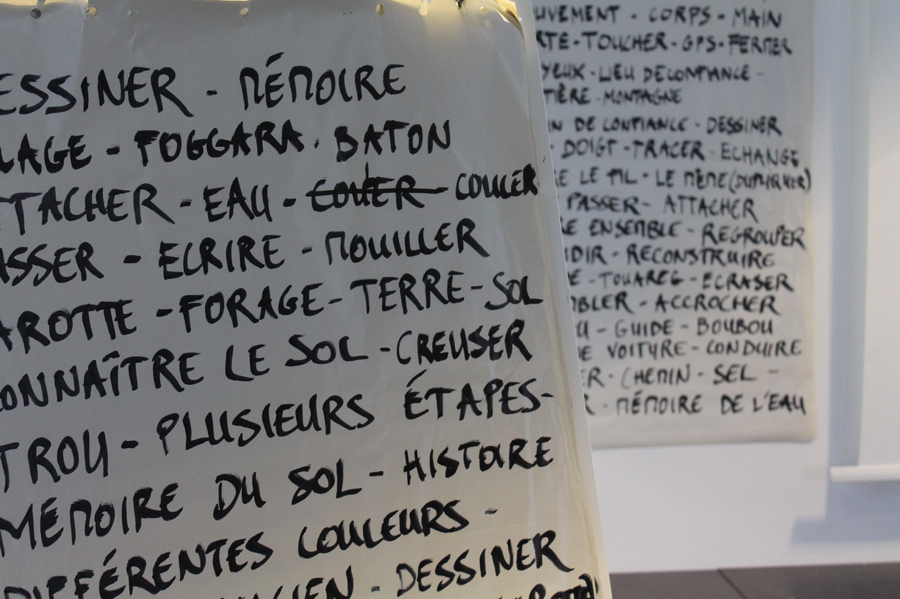 DESSINER - MÉMOIRE
- FOGGARA. BATON
ATTACHER - EAU - COULER
- ECRIRE - MOUILLER
CAROTTE - FORAGE - TERRE - SOL
CONNAÎTRE LE SOL - CREUSER
TROU - PLUSIEURS ÉTAPES-
MÉMOIRE DU SOL - HISTOIRE
DIFFÉRENTES COULEURS -
- DESSINER
MOUVEMENT - CORPS - MAIN
- TOUCHER - GPS - FERMER
YEUX - LIEU DE CONFIANCE -
- MONTAGNE
DE CONFIANCE - DESSINER
DOIGT - TRACER - ECHANGE
LE FIL - LE MÊME
PASSER - ATTACHER
ENSEMBLE - REGROUPER
- RECONSTRUIRE
- TOUAREG - ECRASER
- ACCROCHER
- GUIDE - BOUBOU
VOITURE - CONDUIRE
- CHEMIN - SEL -
- MÉMOIRE DE L'EAU